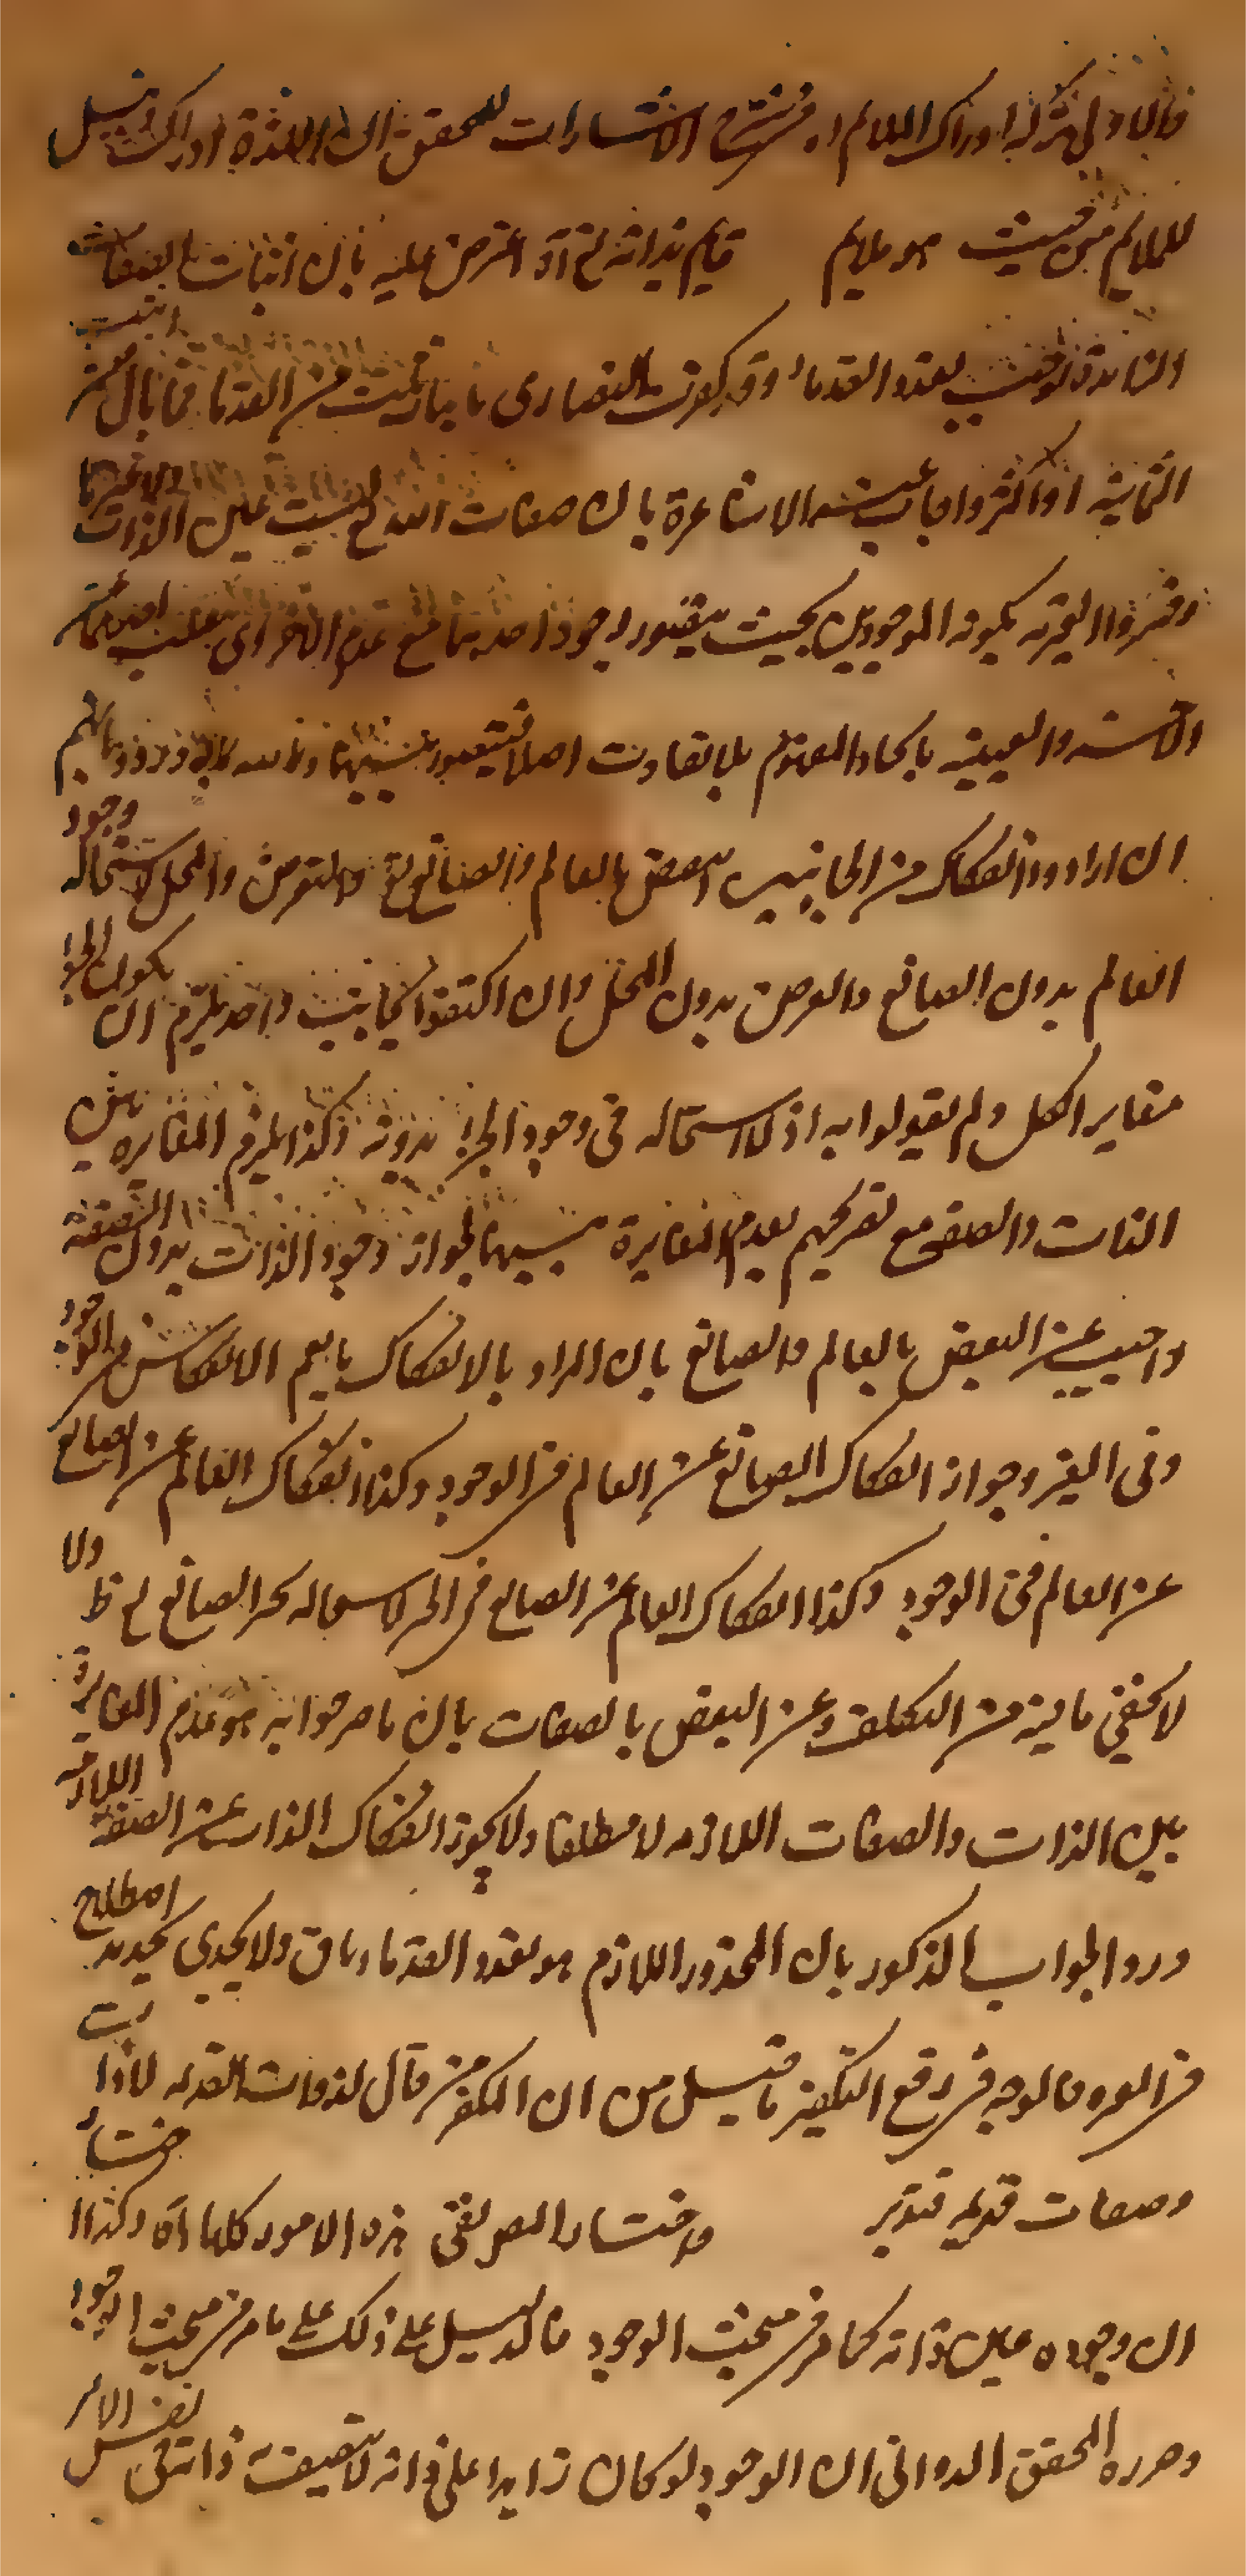 فالاولى تركه ادراك الملائم اه في شرح الاشارات للمحقق ان اللذة ادراك ونيل
للملايم من حيث هو ملايم قايم بذاته تع آه اعترض عليه بان اثبات الصفات
الزايدة توجب تعدد القدماء وقد كفرت النصارى باثبات ثلث من القدما فما بال من اثبت
الثمانية او اكثر واجاب عنه الاشاعرة بان صفات الله تع ليست عين الذات ولا غيرها
وفسروا الغيرية بكون الموجودين بحيث يتصور وجود احدهما مع عدم الاخر اى ينفك احدهما عن
الآخر والعينية باتحاد المفهوم بلا تفاوت اصلا فيتصور بينهما واسطة
ان ارادوا انفكاك من الجانبين انتقض بالعالم والصانع تع والعرض والمحل لاستحالة وجود
العالم بدون الصانع والعرض بدون المحل وان اكتفوا بجانب واحد يلزم ان يكون الجزء
مغاير الكل ولم يقولوا به اذ لا استحالة فى وجود الجزء بدونه وكذا يلزم المغايره بين
الذات والصفة مع تصريحهم بعدم المغايرة بينهما لجواز وجود الذات بدون الصفة
واجيب عن النقض بالعالم والصانع بان المراد بالانفكاك ما يعم الانفكاك في الوجود
وفى الحيز وجواز انفكاك الصانع عن العالم في الوجود وكذا انفكاك العالم عن الصانع
عن العالم فى الوجود وكذا انفكاك العالم عن الصانع في الحيز لاستحالة تحيز الصانع تع ظ ولا
لا يخفى ما فيه من التكلف وعن النقض بالصفات بان ما صرحوا به هو عدم المغايرة
بين الذات والصفات اللازمه لا مطلقا ولا يجوز انفكاك الذات عن الصفة اللازمه
ورد الجواب المذكور بان المحذور اللازم هو تعدد القدما وباق ولا يجدى تجديد اصطلاح
في الغيرية فالوجه في دفع التكفير ما قيل من ان الكفر من قال لذوات القديمه لا ذات
وصفات قديمه فتدبر واختار المص نفى هذه الامور كلها آه وكذا اختار
ان وجوده عين ذاته كما مر في مبحث الوجود فالدليل على ذلك على ما مر في مبحث الوجود
وحرره المحقق الدوانى ان الوجود لو كان زايدا على ذاته لا تتصف ذاته فى نفس الامر